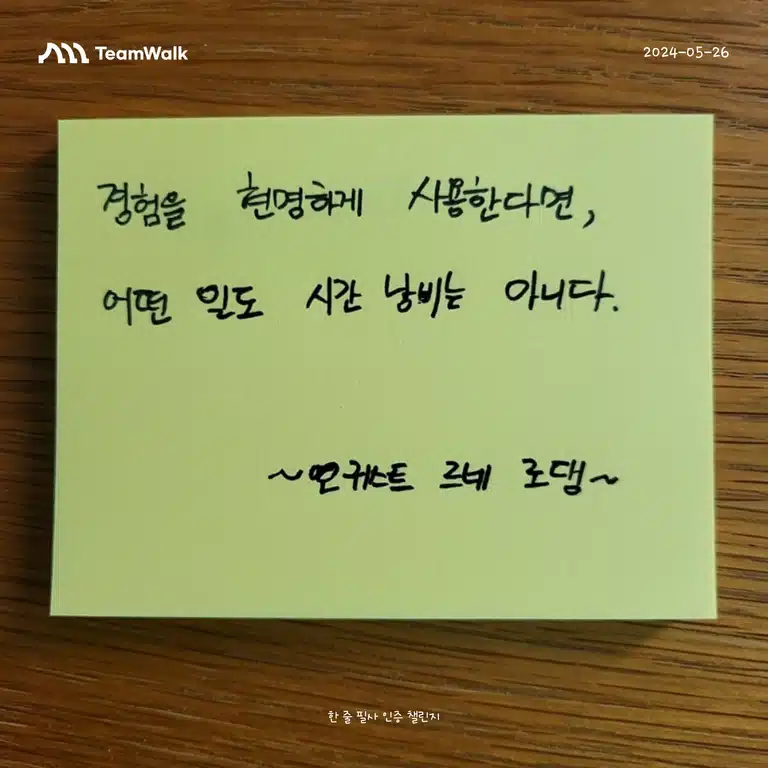 TeamWalk
2024-05-26
경험을 현명하게 사용한다면,
어떤 일도 시간 낭비는 아니다.
르네 로댕~
한 줄 필사 인증 챌린지